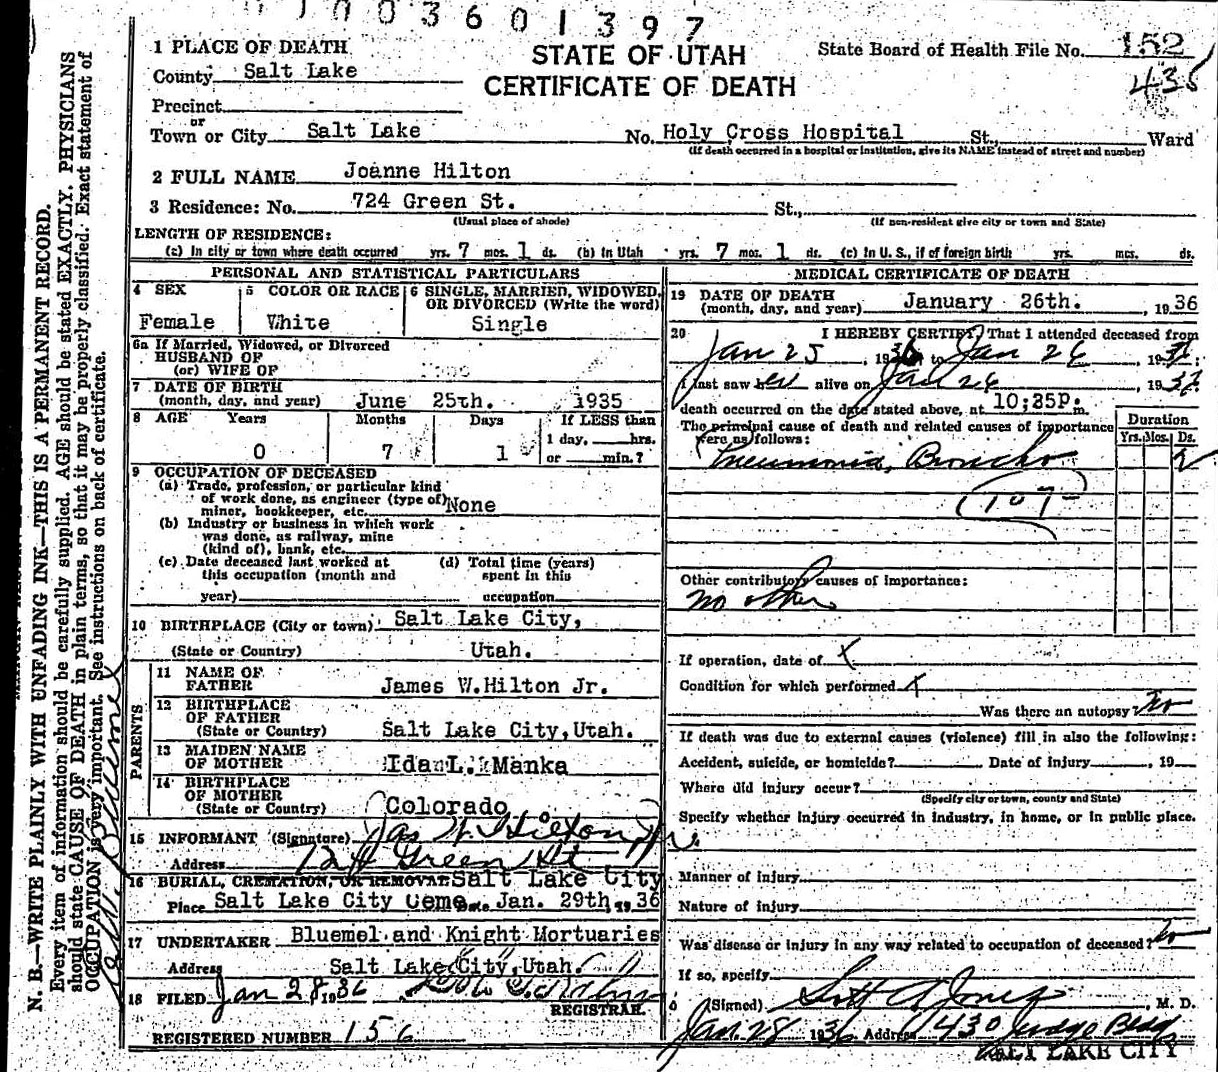 0 1 0 0 3 6 0 1 3 9 7
STATE OF UTAH
CERTIFICATE OF DEATH
State Board of Health File No. 152
435
1 PLACE OF DEATH
County Salt Lake
Precinct
or
Town or City Salt Lake No. Holy Cross Hospital St., Ward
(If death occurred in a hospital or institution, give its NAME instead of street and number)
2 FULL NAME Joanne Hilton
3 Residence: No. 724 Green St. St.,
(Usual place of abode) (If non-resident give city or town and State)
LENGTH OF RESIDENCE:
(c) In city or town where death occurred yrs. 7 mos. 1 ds. (b) In Utah yrs. 7 mos. 1 ds. (c) In U. S., if of foreign birth yrs. mos. ds.
PERSONAL AND STATISTICAL PARTICULARS
4 SEX 5 COLOR OR RACE 6 SINGLE, MARRIED, WIDOWED, OR DIVORCED (Write the word)
Female White Single
6a If Married, Widowed, or Divorced
HUSBAND OF
(or) WIFE OF
7 DATE OF BIRTH
(month, day, and year) June 25th. 1935
8 AGE Years Months Days If LESS than
0 7 1 1 day, hrs.
or min.?
9 OCCUPATION OF DECEASED
(a) Trade, profession, or particular kind
of work done, as engineer (type of)
miner, bookkeeper, etc. None
(b) Industry or business in which work
was done, as railway, mine
(kind of), bank, etc.
(c) Date deceased last worked at (d) Total time (years)
this occupation (month and spent in this
year) occupation
10 BIRTHPLACE (City or town) Salt Lake City,
(State or Country) Utah.
PARENTS
11 NAME OF
FATHER James W. Hilton Jr.
12 BIRTHPLACE
OF FATHER
(State or Country) Salt Lake City, Utah.
13 MAIDEN NAME
OF MOTHER Ida L. Manka
14 BIRTHPLACE
OF MOTHER
(State or Country) Colorado
15 INFORMANT (Signature) Jas W. Hilton Jr.
Address 724 Green St
16 BURIAL, CREMATION, OR REMOVAL Salt Lake City
Place Salt Lake City Ceme. Jan. 29th, 1936
17 UNDERTAKER Bluemel and Knight Mortuaries
Address Salt Lake City, Utah.
18 FILED Jan 28 1936
REGISTRAR.
REGISTERED NUMBER 156
MEDICAL CERTIFICATE OF DEATH
19 DATE OF DEATH
(month, day, and year) January 26th. , 1936
20 I HEREBY CERTIFY, That I attended deceased from
Jan 25, 1936 to Jan 26, 1936.
I last saw her alive on Jan 26, 1936.
death occurred on the date stated above, at 10:35P. m.
The principal cause of death and related causes of importance
were as follows:
Duration
Yrs. Mos. Ds.
Pneumonia, Broncho 2
(107)
Other contributory causes of importance:
no other
If operation, date of x
Condition for which performed x
Was there an autopsy? No
If death was due to external causes (violence) fill in also the following:
Accident, suicide, or homicide? Date of injury , 19
Where did injury occur?
(Specify city or town, county and State)
Specify whether injury occurred in industry, in home, or in public place.
Manner of injury
Nature of injury
Was disease or injury in any way related to occupation of deceased? No
If so, specify
(Signed) Scott A Jones , M. D.
Jan. 28 1936 Address 430 Judge Bldg
SALT LAKE CITY
N. B.—WRITE PLAINLY WITH UNFADING INK—THIS IS A PERMANENT RECORD.
Every item of information should be carefully supplied. AGE should be stated EXACTLY. PHYSICIANS
should state CAUSE OF DEATH in plain terms, so that it may be properly classified. Exact statement of
OCCUPATION is very important. See instructions on back of certificate.